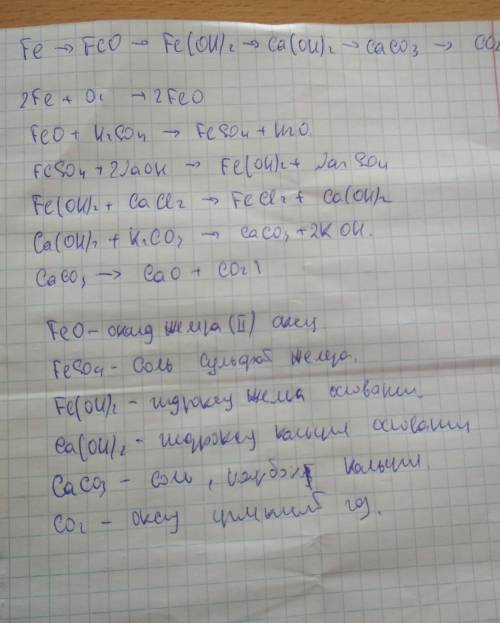 Fe → FeO → Fe(OH)2 → Ca(OH)2 → CaCO3 → CO2
2Fe + O2 → 2FeO
FeO + H2SO4 → FeSO4 + H2O
FeSO4 + 2NaOH → Fe(OH)2 + Na2SO4
Fe(OH)2 + CaCl2 → FeCl2 + Ca(OH)2
Ca(OH)2 + K2CO3 → CaCO3 + 2KOH.
CaCO3 → CaO + CO2↑
FeO - оксид железа (II)
FeSO4 - Соль сульфат железа.
Fe(OH)2 - гидроксид железа основание
Ca(OH)2 - гидроксид кальция основание
CaCO3 - соль, карбонат кальция
CO2 - оксид газ.